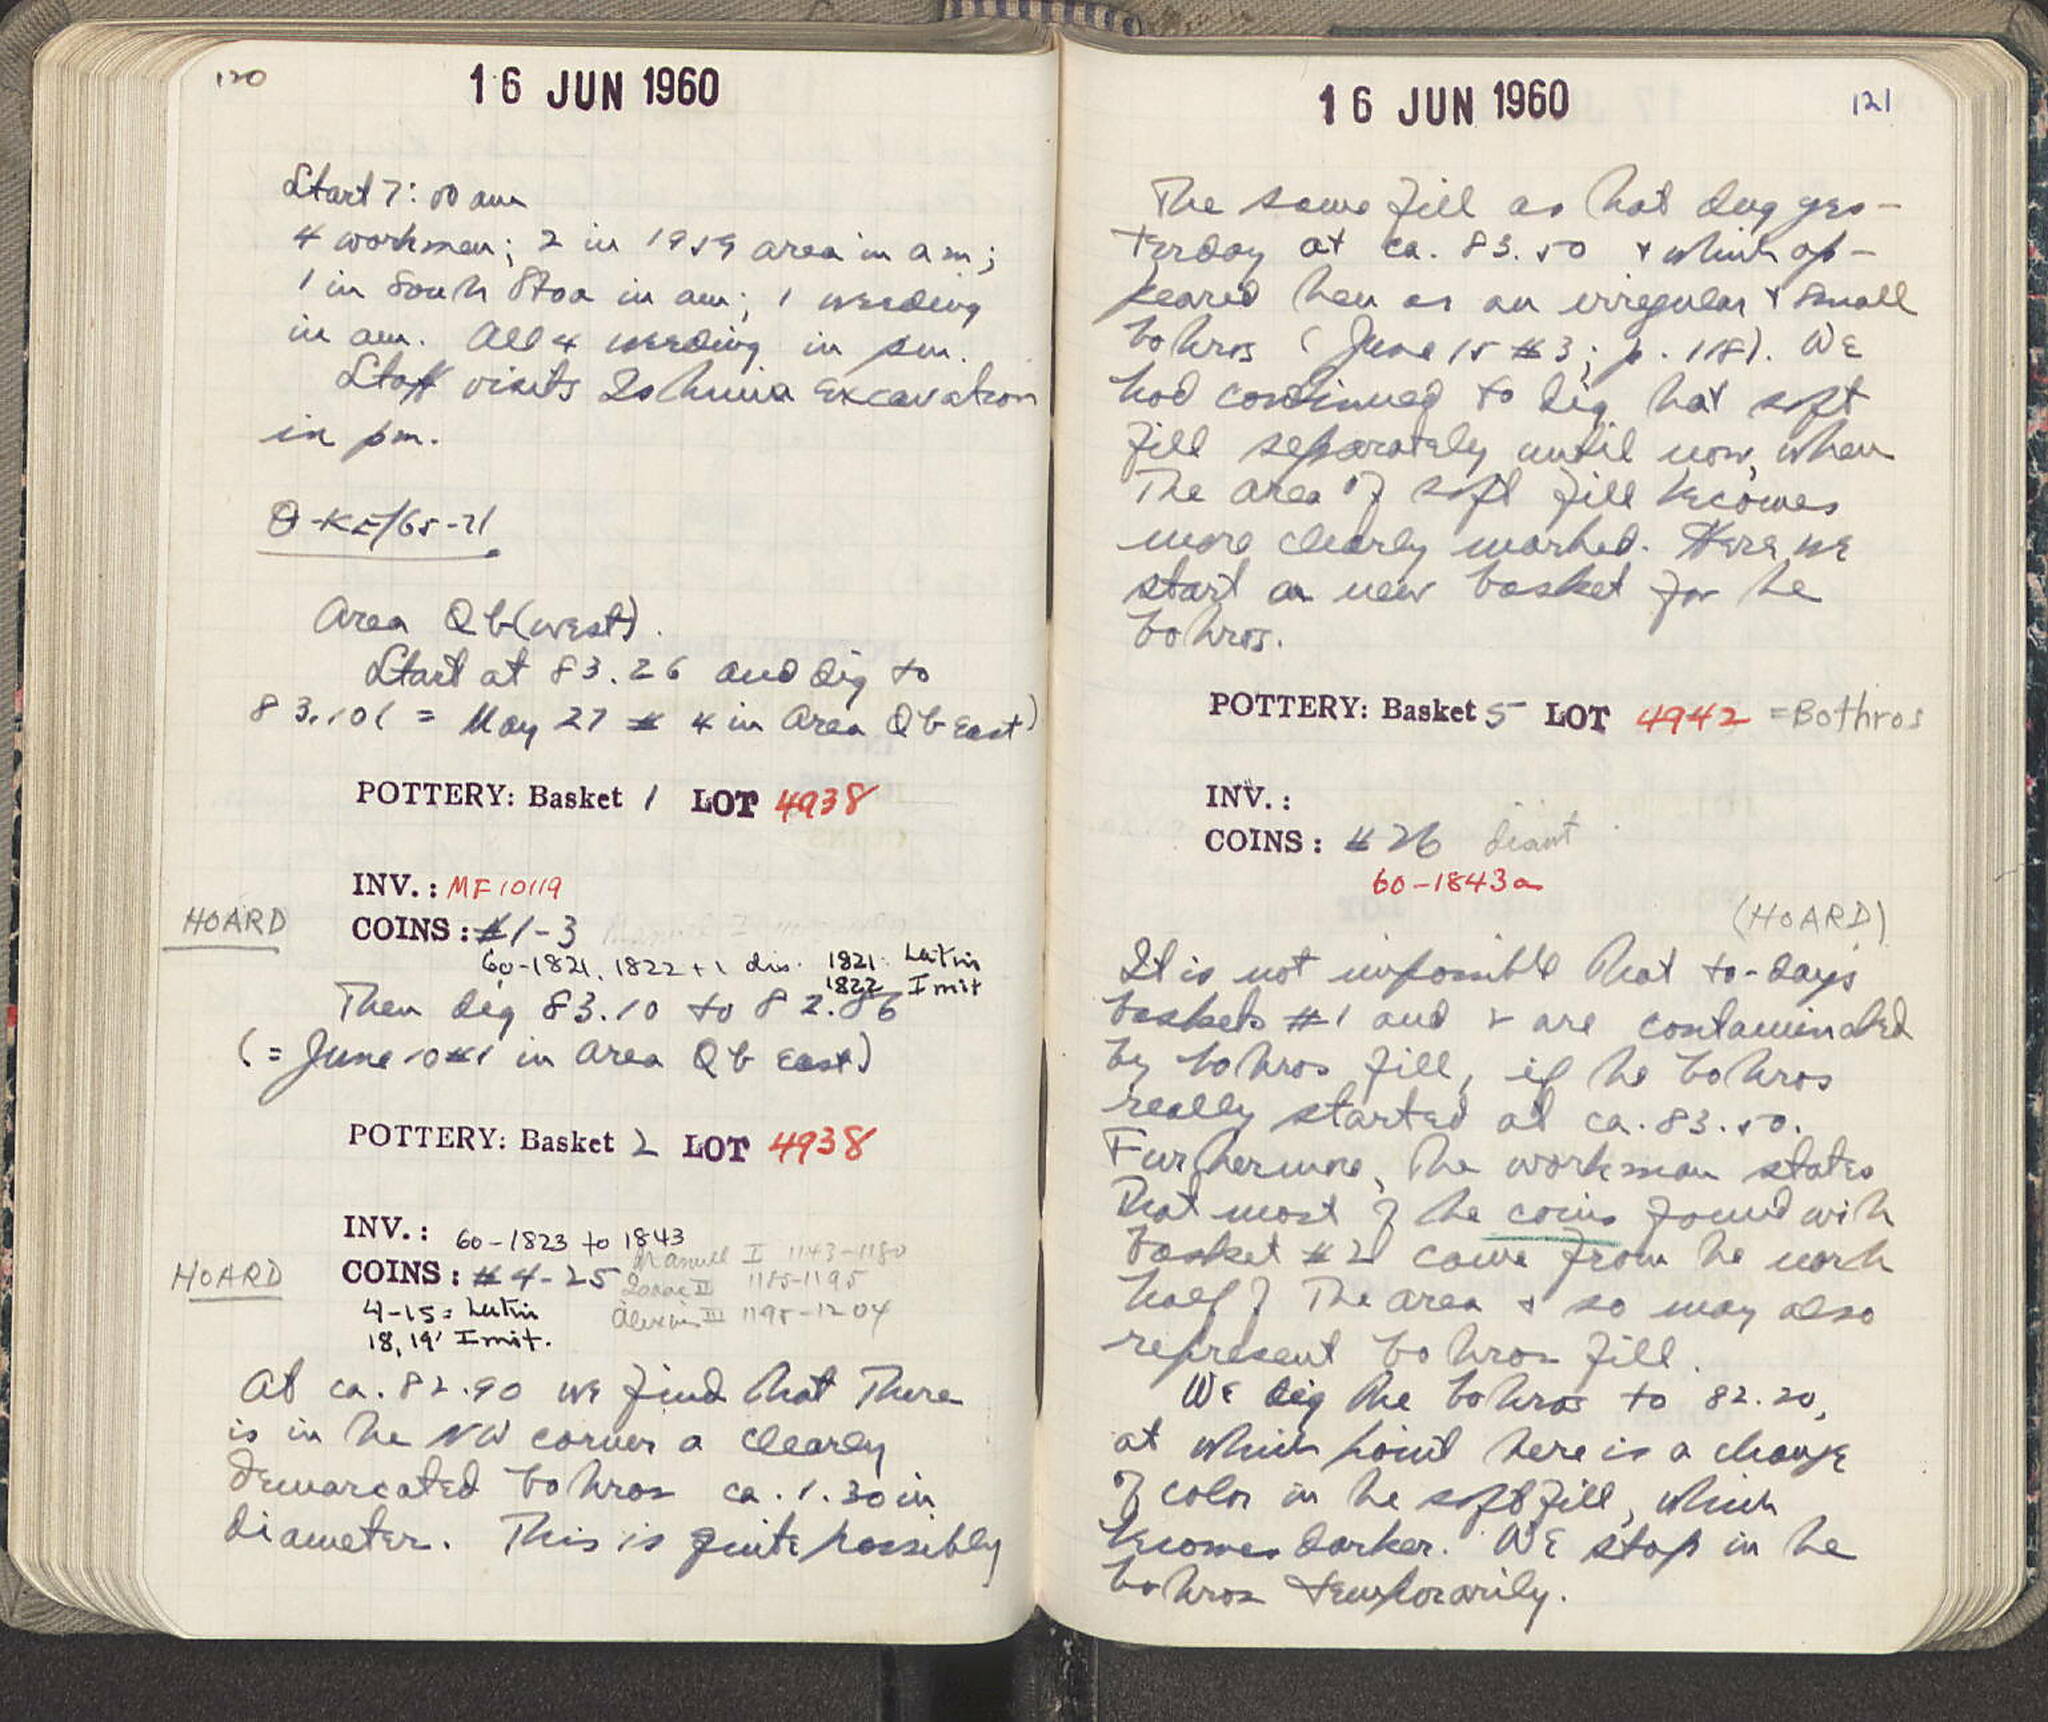 120
16 JUN 1960
Start 7:00 am
4 workmen; 2 in 1959 area in am;
1 in South Stoa in am; 1 weeding
in am. All 4 weeding in pm.
Staff visits Isthmia Excavation
in pm.
-KE/65-71
Area Qb(west).
Start at 83.26 and dig to
83.10 (= May 27 # 4 in Area Qb East)
POTTERY: Basket 1 LOT 4938
INV.: MF10119
HOARD
COINS: #1-3
60-1821, 1822 + 1 dis. 1821: Latin
1822 Imit
Then dig 83.10 to 82.86
(= June 10 #1 in Area Qb East)
POTTERY: Basket 2 LOT 4938
INV.: 60-1823 to 1843
HOARD
COINS: #4-25 Manuel I 1143-1180
Isaac II 1185-1195
Alexius III 1195-1204
4-15 = Latin
18, 19 Imit.
At ca. 82.90 we find that there
is in the NW corner a clearly
demarcated bothros ca. 1.30 in
diameter. This is quite possibly
16 JUN 1960
121
the same fill as that dug yes-
terday at ca. 83.50 & which ap-
peared then as an irregular & small
bothros (June 15 #3; p. 118). We
had continued to dig that soft
fill separately until now, when
the area of soft fill becomes
more clearly marked. Here we
start a new basket for the
bothros.
POTTERY: Basket 5 LOT 4942 = Bothros
INV.:
COINS: #26 disint
60-1843a
(HOARD)
It is not impossible that to-day's
baskets #1 and 2 are contaminated
by bothros fill, if the bothros
really started at ca. 83.50.
Furthermore, the workman states
that most of the coins found with
basket #2 came from the north
half of the area & so may also
represent bothros fill.
We dig the bothros to 82.20,
at which point there is a change
of color in the soft fill, which
becomes darker. We stop in the
bothros temporarily.